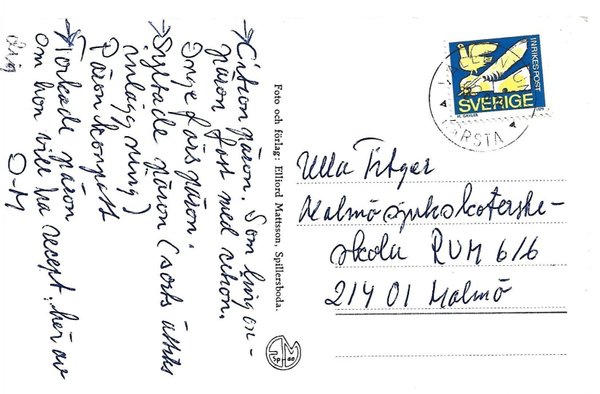 →Citronpäron. Som lingon-
päron fast med citron.
Ingefärspäron.
→Syltade päron (sorts ättiks
inläggning)
Päronkompott
→Torkade päron
om hon vill ha recept, hör av
dig
O-M
Foto och förlag: Elford Mattsson, Spillersboda.
INRIKES POST
SVERIGE
Ulla
Malmö sjuksköterske-
skola RUM 616
214 01 Malmö